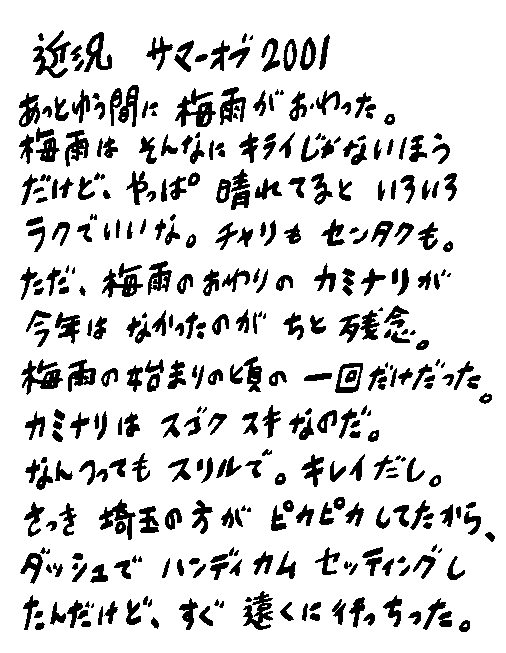 近況 サマーオブ2001
あっとゆう間に 梅雨がおわった。
梅雨は そんなに キライじゃないほう
だけど、やっぱ 晴れてると いろいろ
ラクでいいな。チャリも センタクも。
ただ、梅雨のおわりの カミナリが
今年は なかったのが ちと 残念。
梅雨の始まりの頃の 一回だけだった。
カミナリは スゴク スキなのだ。
なんつっても スリルで。キレイだし。
さっき 埼玉の方が ピカピカしてたから、
ダッシュで ハンディカム セッティングし
たんだけど、すぐ 遠くに行っちった。